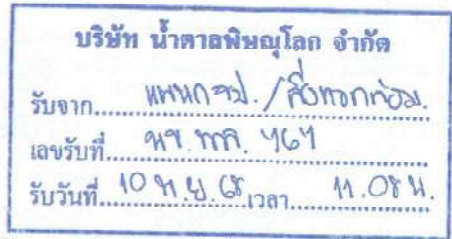 บริษัท น้ำตาลพิษณุโลก จำกัด
รับจาก แผนก จป. / สิ่งแวดล้อม.
เลขรับที่
รับวันที่ 10 พ.ย. 68 เวลา 11.08 น.